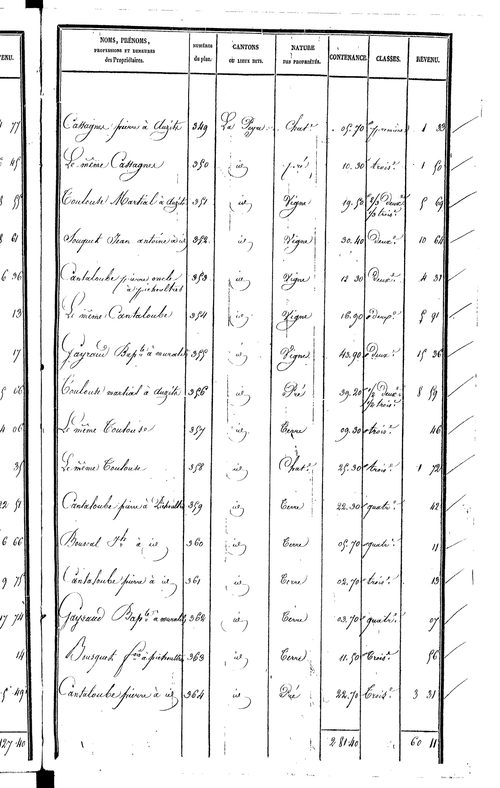 NOMS, PRÉNOMS, NUMÉROS CANTONS NATURE CONTENANCE. CLASSES. REVENU.
PROFESSIONS ET DEMEURES du plan. OU LIEUX DITS. DES PROPRIÉTÉS.
des Propriétaires.
77 Cassagnes pierre à 349 La Peyre Chat.e 05.70 première 1 33
45 Le même Cassagnes 350 id pré 10.30 trois.e 1 50
55 Toulouse Martial à 351 id Vigne 19.50 1/2 deux.e 5 69
1/2 trois.e
61 Jean antoine à id 352 id Vigne 30.40 deux.e 10 64
6 36 Cantaloube pierre oncle 353 id Vigne 12 30 deux.e 4 31
à
13 Le même Cantaloube 354 id Vigne 16.90 deux.e 5 91
17 Gayraud Bap.te à 355 id Vigne 43.90 deux.e 15 36
06 Toulouse martial à 356 id Pré 39.20 1/2 deux.e 8 59
1/2 trois.e
06 Le même Toulouse 357 id Terre 09.30 trois.e 46
35 Le même Toulouse 358 id Chat.e 25.30 trois.e 1 72
22 51 Cantaloube pierre à 359 id Terre 22.30 quatr.e 42
6 66 à id 360 id Terre 05.70 quatr.e 11
9 75 Cantaloube pierre à id 361 id Terre 02.70 trois.e 13
17 74 Gayraud Bap.te à 362 id Terre 03.70 quatr.e 07
14 Bousquet à 363 id Terre 11.50 trois.e 56
49 Cantaloube pierre à id 364 id Pré 22.70 trois.e 3 31
127.40 2 81.40 60 11